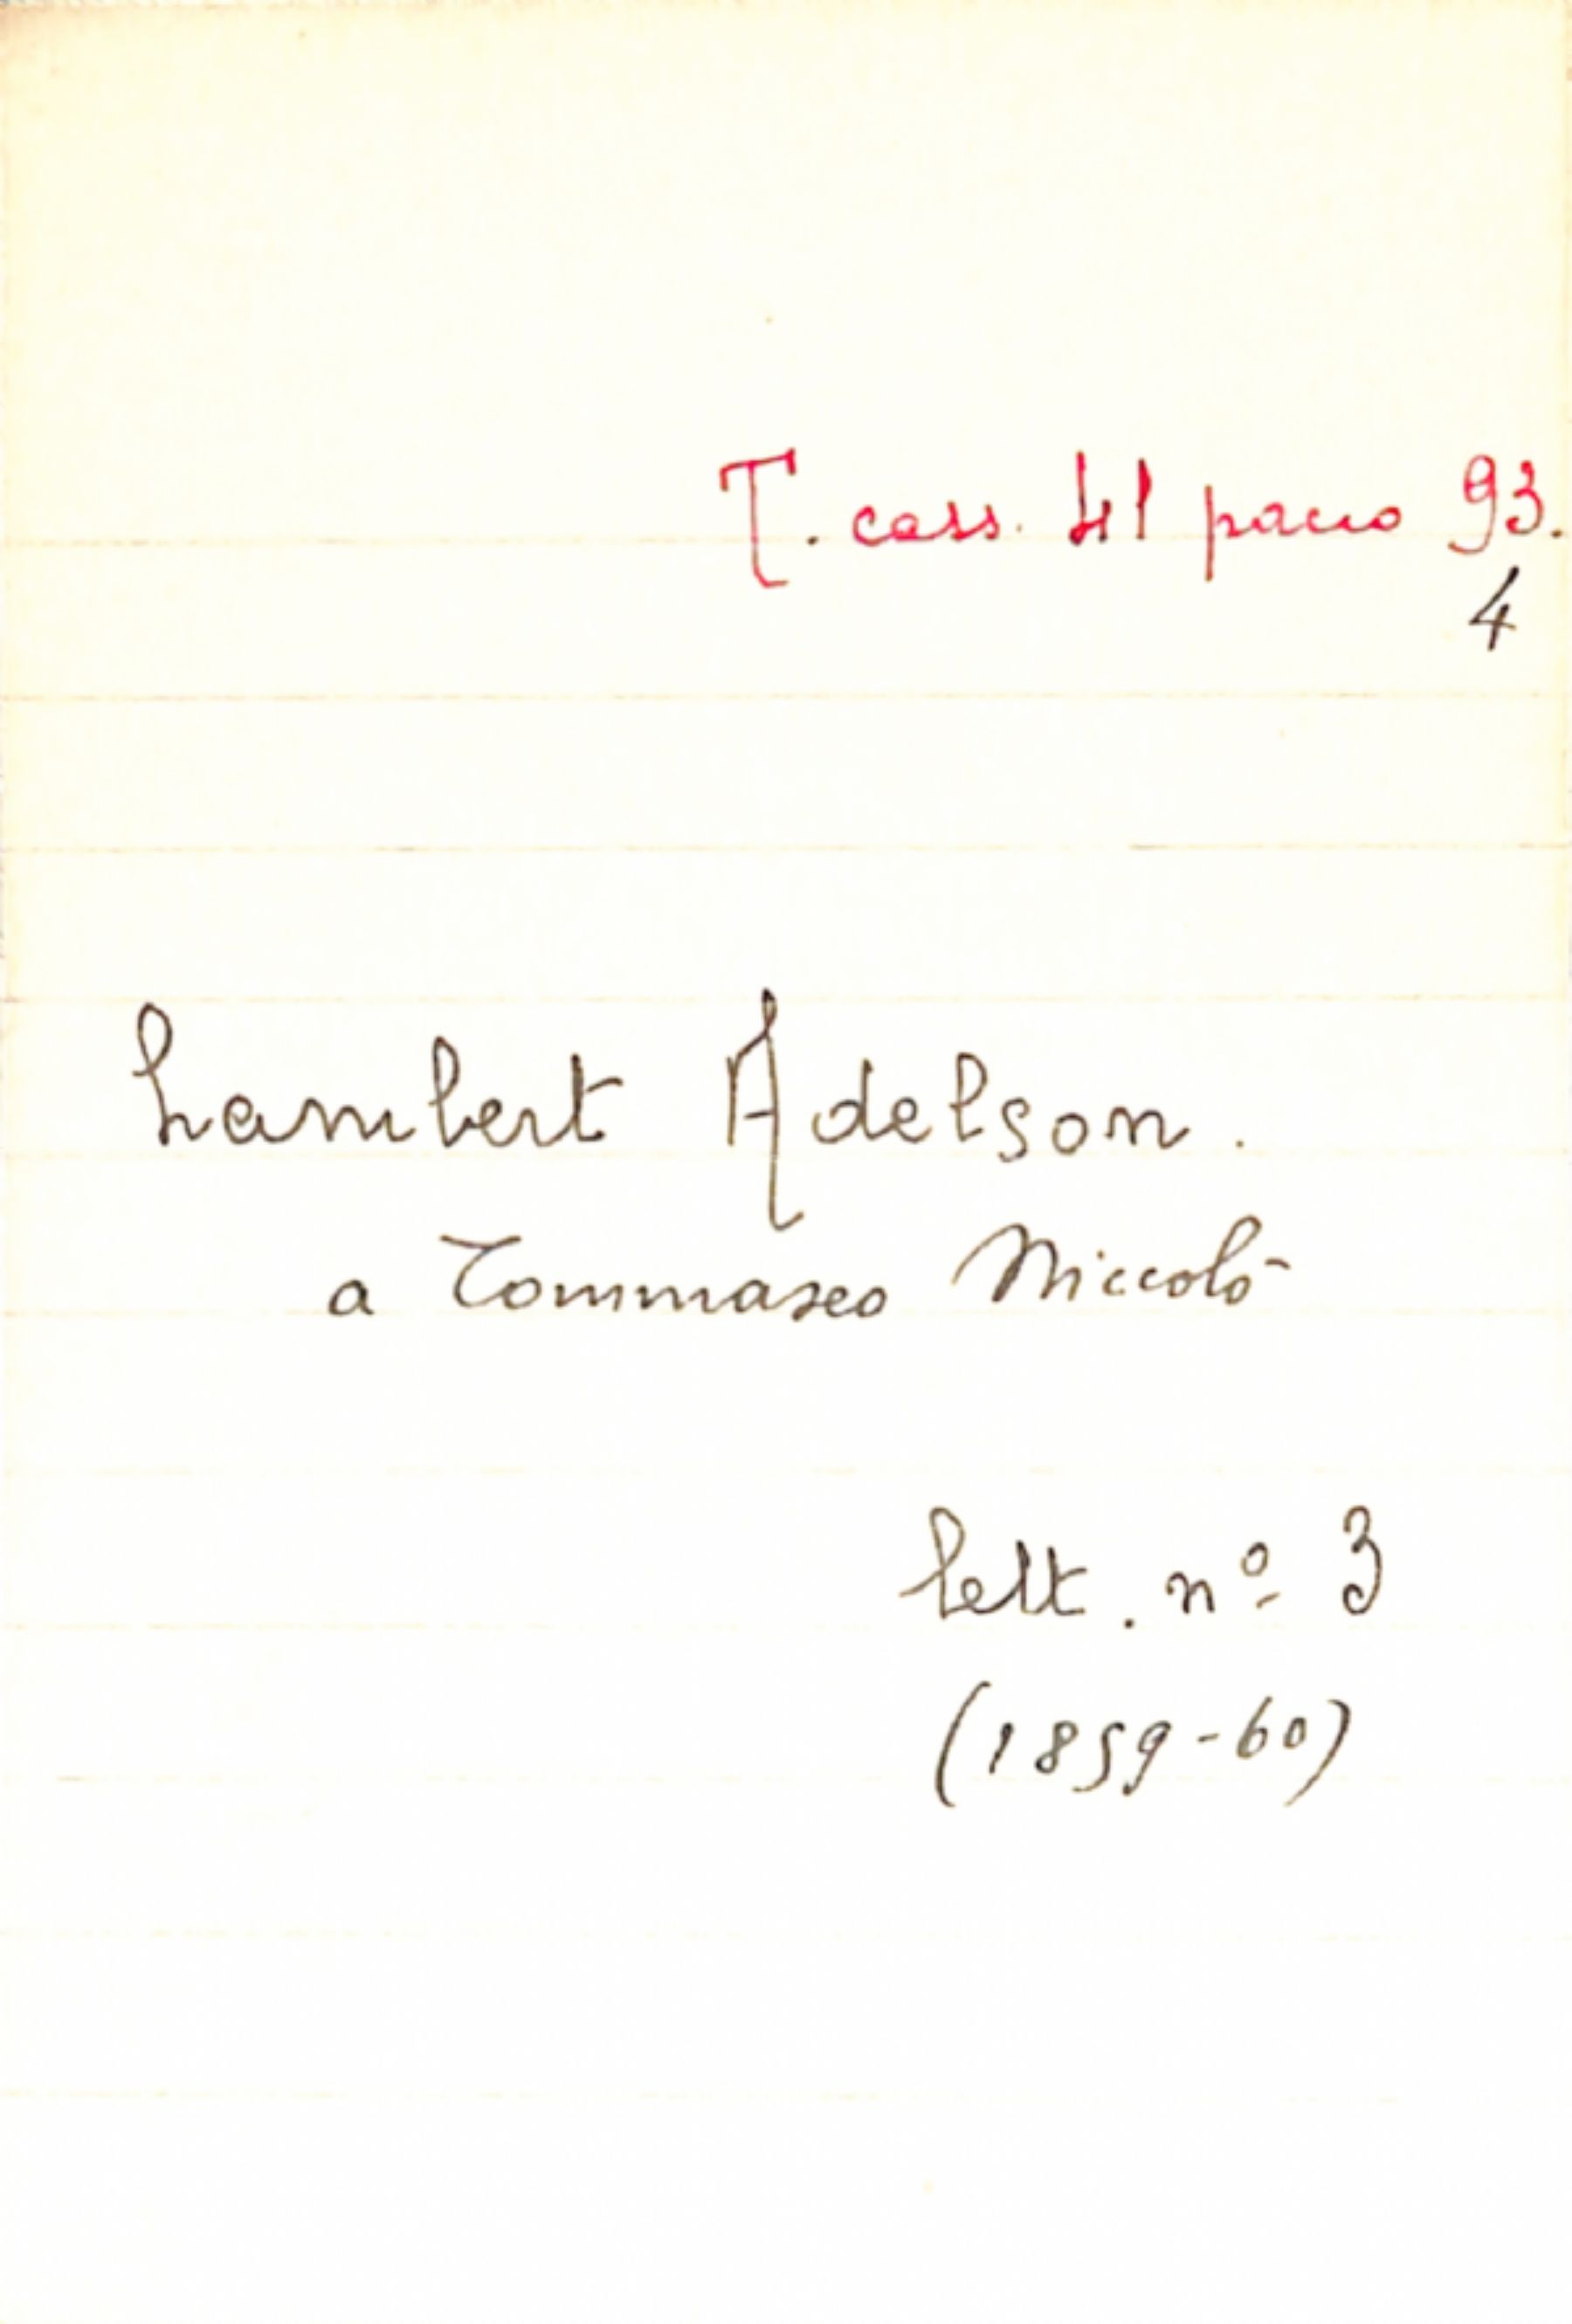 T. cass. 41 pacco 93.
4
Lambert Adelson.
a Tommaseo Niccolò
lett. nº 3
(1859-60)